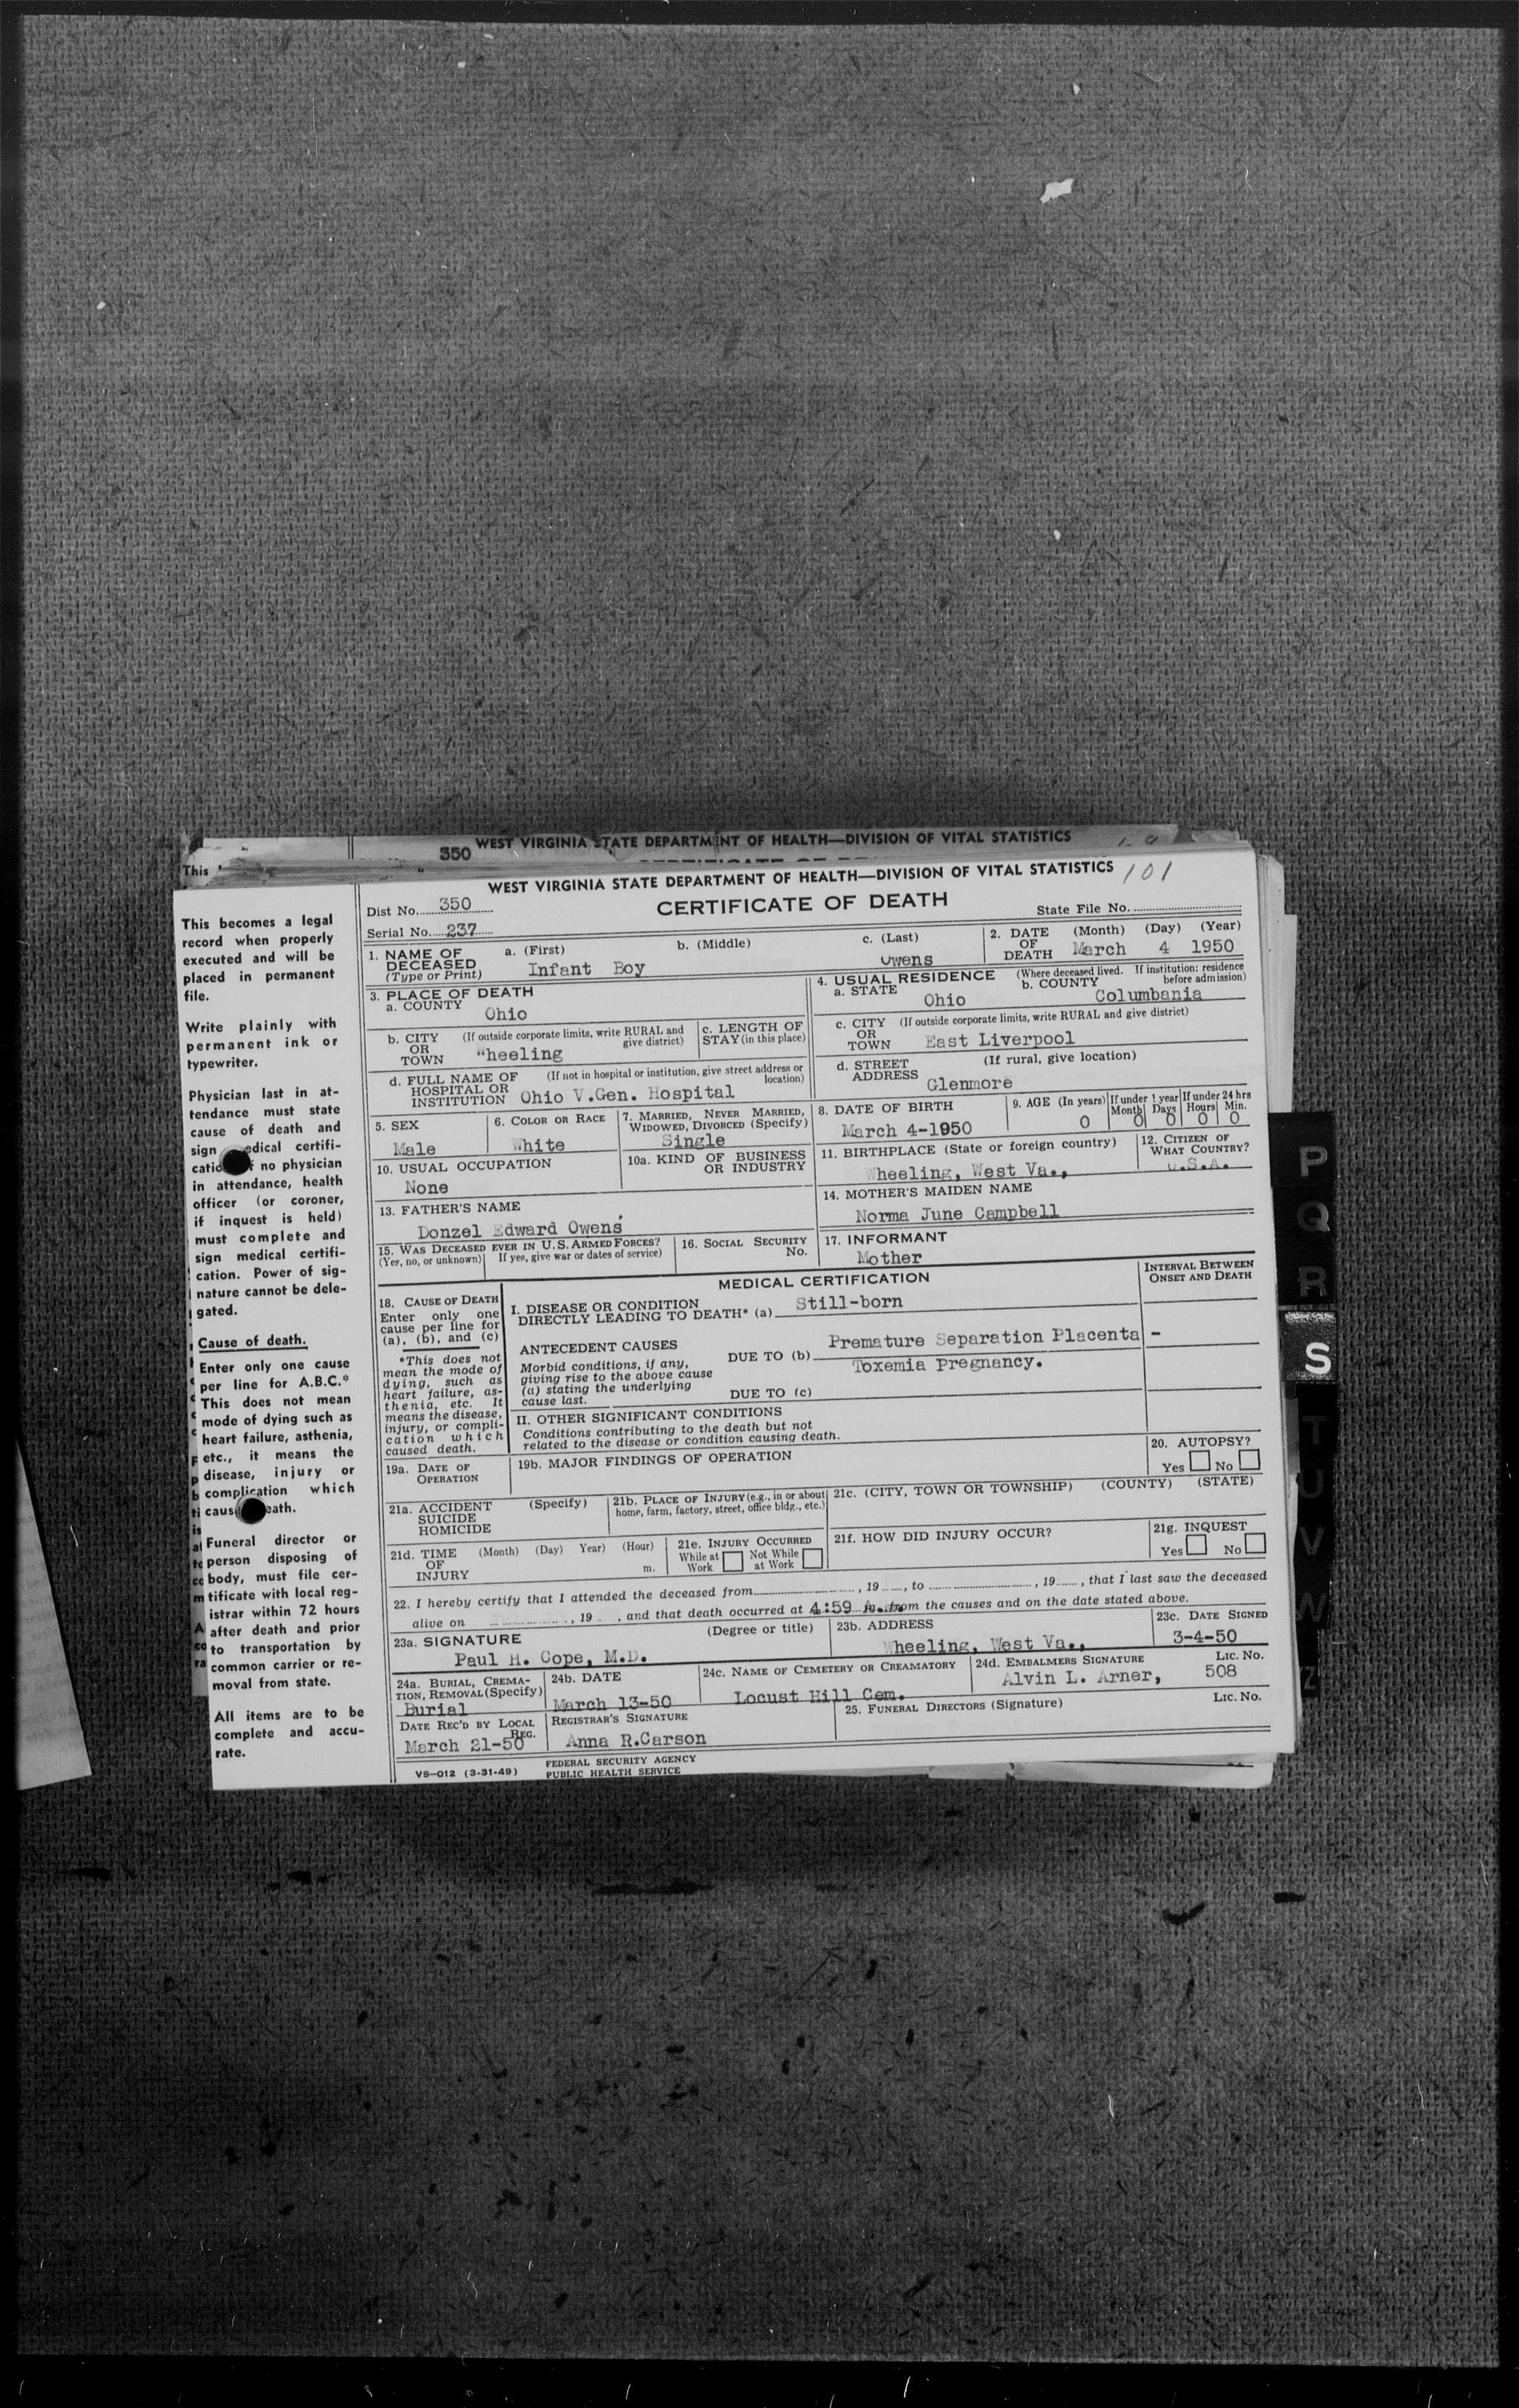 350 WEST VIRGINIA STATE DEPARTMENT OF HEALTH—DIVISION OF VITAL STATISTICS
This
WEST VIRGINIA STATE DEPARTMENT OF HEALTH—DIVISION OF VITAL STATISTICS 101
Dist No. 350
CERTIFICATE OF DEATH
State File No.
Serial No. 237
1. NAME OF DECEASED (Type or Print)
a. (First) Infant Boy
b. (Middle)
c. (Last) Owens
2. DATE OF DEATH (Month) (Day) (Year)
March 4 1950
3. PLACE OF DEATH
a. COUNTY Ohio
4. USUAL RESIDENCE (Where deceased lived. If institution: residence before admission)
a. STATE Ohio
b. COUNTY Columbania
b. CITY OR TOWN (If outside corporate limits, write RURAL and give district)
"heeling
c. LENGTH OF STAY (in this place)
c. CITY OR TOWN (If outside corporate limits, write RURAL and give district)
East Liverpool
d. FULL NAME OF HOSPITAL OR INSTITUTION (If not in hospital or institution, give street address or location)
Ohio V.Gen. Hospital
d. STREET ADDRESS (If rural, give location)
Glenmore
5. SEX
Male
6. COLOR OR RACE
White
7. MARRIED, NEVER MARRIED, WIDOWED, DIVORCED (Specify)
Single
8. DATE OF BIRTH
March 4-1950
9. AGE (In years) 0
If under 1 year Month 0 Days 0
If under 24 hrs Hours 0 Min. 0
10. USUAL OCCUPATION
None
10a. KIND OF BUSINESS OR INDUSTRY
11. BIRTHPLACE (State or foreign country)
Wheeling, West Va.,
12. CITIZEN OF WHAT COUNTRY?
U.S.A.
13. FATHER'S NAME
Donzel Edward Owens
14. MOTHER'S MAIDEN NAME
Norma June Campbell
15. WAS DECEASED EVER IN U.S. ARMED FORCES?
(Yes, no, or unknown) If yes, give war or dates of service)
16. SOCIAL SECURITY No.
17. INFORMANT
Mother
MEDICAL CERTIFICATION
INTERVAL BETWEEN ONSET AND DEATH
18. CAUSE OF DEATH
Enter only one
cause per line for
(a), (b), and (c)
*This does not
mean the mode of
dying, such as
heart failure, as-
thenia, etc. It
means the disease,
injury, or compli-
cation which
caused death.
I. DISEASE OR CONDITION
DIRECTLY LEADING TO DEATH* (a) Still-born
ANTECEDENT CAUSES
Morbid conditions, if any,
giving rise to the above cause
(a) stating the underlying
cause last.
DUE TO (b) Premature Separation Placenta -
Toxemia Pregnancy.
DUE TO (c)
II. OTHER SIGNIFICANT CONDITIONS
Conditions contributing to the death but not
related to the disease or condition causing death.
19a. DATE OF OPERATION
19b. MAJOR FINDINGS OF OPERATION
20. AUTOPSY?
Yes No
21a. ACCIDENT SUICIDE HOMICIDE (Specify)
21b. PLACE OF INJURY (e.g., in or about home, farm, factory, street, office bldg., etc.)
21c. (CITY, TOWN OR TOWNSHIP) (COUNTY) (STATE)
21d. TIME OF INJURY (Month) (Day) Year) (Hour) m.
21e. INJURY OCCURRED
While at Work Not While at Work
21f. HOW DID INJURY OCCUR?
21g. INQUEST
Yes No
22. I hereby certify that I attended the deceased from , 19 , to , 19 , that I last saw the deceased
alive on , 19 , and that death occurred at 4:59 A.m. from the causes and on the date stated above.
23a. SIGNATURE (Degree or title)
Paul H. Cope, M.D.
23b. ADDRESS
Wheeling, West Va.,
23c. DATE SIGNED
3-4-50
24a. BURIAL, CREMATION, REMOVAL (Specify)
Burial
24b. DATE
March 13-50
24c. NAME OF CEMETERY OR CREAMATORY
Locust Hill Cem.
24d. EMBALMERS SIGNATURE LIC. NO.
Alvin L. Arner, 508
DATE REC'D BY LOCAL REG.
March 21-50
REGISTRAR'S SIGNATURE
Anna R.Carson
25. FUNERAL DIRECTORS (Signature) LIC. NO.
VS—012 (3-31-49)
FEDERAL SECURITY AGENCY
PUBLIC HEALTH SERVICE
This becomes a legal
record when properly
executed and will be
placed in permanent
file.
Write plainly with
permanent ink or
typewriter.
Physician last in at-
tendance must state
cause of death and
sign edical certifi-
catio f no physician
in attendance, health
officer (or coroner,
if inquest is held)
must complete and
sign medical certifi-
cation. Power of sig-
nature cannot be dele-
gated.
Cause of death.
Enter only one cause
per line for A.B.C.*
This does not mean
mode of dying such as
heart failure, asthenia,
etc., it means the
disease, injury or
complication which
caus eath.
Funeral director or
person disposing of
body, must file cer-
tificate with local reg-
istrar within 72 hours
after death and prior
to transportation by
common carrier or re-
moval from state.
All items are to be
complete and accu-
rate.
P
Q
R
S
T
U
V
W
Z